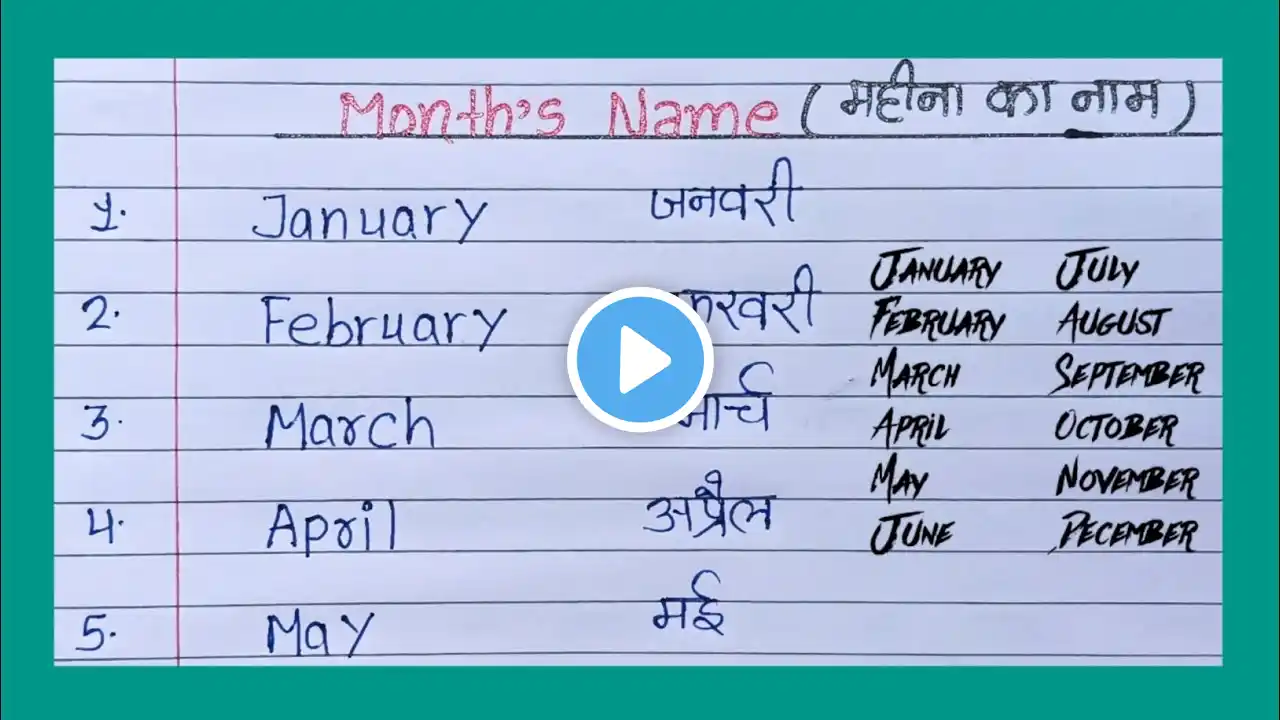 Month's Name (महीना का नाम)
1. January जनवरी
2. February
3. March
4. April अप्रैल
5. May मई
January July
February August
March September
April October
May November
June December